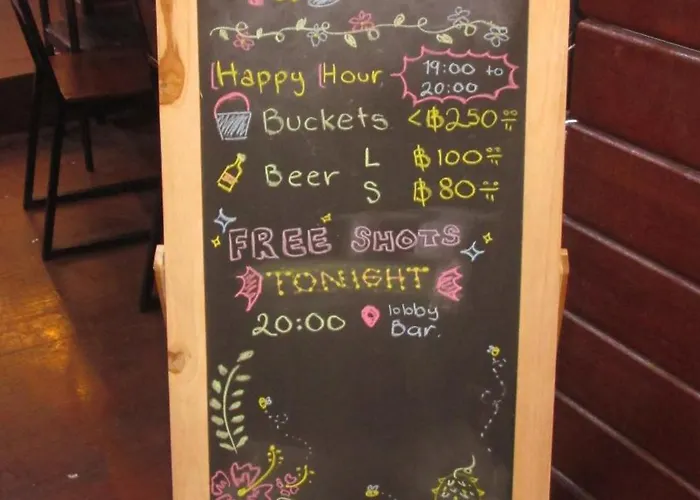 Happy Hour 19:00 to
20:00
Buckets <฿250.00
Beer L ฿100.00
S ฿80.00
FREE SHOTS
TONIGHT
20:00 lobby
Bar.